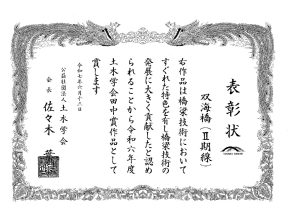 表彰状
双海橋（Ⅱ期線）
右作品は橋梁技術において
すぐれた特色を有し橋梁技術の
発展に大きく貢献したと認め
られることから令和六年度
土木学会田中賞作品として
賞します
令和七年六月十三日
公益社団法人土木学会
会長 佐々木 葉